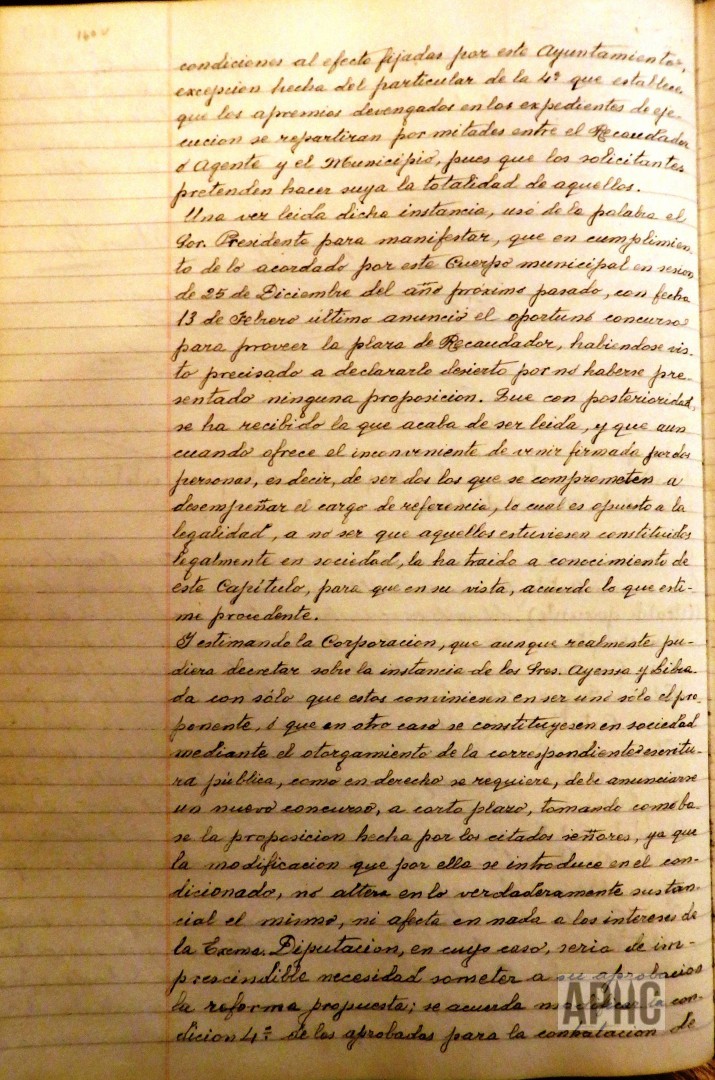 140v
condiciones al efecto fijadas por este Ayuntamiento,
excepcion hecha del particular de la 4ª que establece
que los apremios devengados en los expedientes de eje-
cucion se repartiran por mitades entre el Recaudador
ó Agente y el Municipio, pues que los solicitantes
pretenden hacer suya la totalidad de aquellos.
Una vez leida dicha instancia, usó de la palabra el
Sor. Presidente para manifestar, que en cumplimien-
to de lo acordado por este Cuerpo municipal en sesion
de 25 de Diciembre del año próximo pasado, con fecha
13 de Febrero último anunció el oportuno concurso
para proveer la plaza de Recaudador, habiendose vis-
to precisado a declararlo desierto por no haberse pre-
sentado ninguna proposicion. Que con posterioridad,
se ha recibido la que acaba de ser leida, y que aun
cuando ofrece el inconveniente de venir firmada por dos
personas, es decir, de ser dos los que se comprometen a
desempeñar el cargo de referencia, lo cual es opuesto a la
legalidad, a no ser que aquellos estuviesen constituidos
legalmente en sociedad, la ha traido a conocimiento de
este Capítulo, para que en su vista, acuerde lo que esti-
me procedente.
Y estimando la Corporacion, que aunque realmente pu-
diera decretar sobre la instancia de los Sres. Ayensa y Liba-
da con sólo que estos conviniesen en ser uno sólo el pro-
ponente, ó que en otro caso se constituyesen en sociedad
mediante el otorgamiento de la correspondiente escritu-
ra pública, como en derecho se requiere, debe anunciarse
un nuevo concurso, a corto plazo, tomando como ba-
se la proposicion hecha por los citados señores, ya que
la modificacion que por ella se introduce en el con-
dicionado, no altera en lo verdaderamente sustan-
cial el mismo, ni afecta en nada a los intereses de
la Excma. Diputacion, en cuyo caso, seria de im-
prescindible necesidad someter a su aprobacion
la reforma propuesta; se acuerda modificar la con-
dicion 4ª de las aprobadas para la contratacion de
APHC